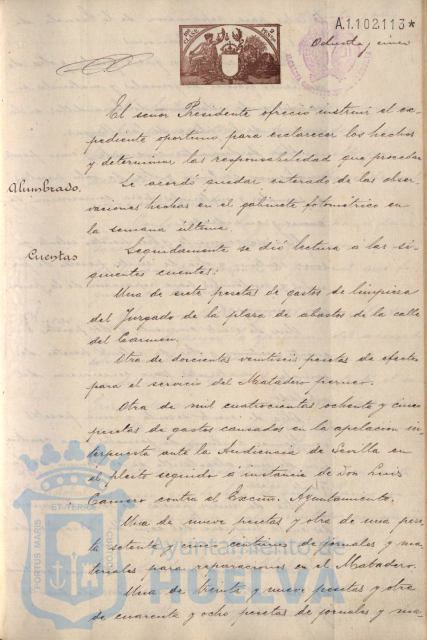 A.1.102113*
Ochenta y cinco
El señor Presidente ofreció instruir el ex-
pediente oportuno para esclarecer los hechos
y determinar las responsabilidad que proceda.
Alumbrado.
Se acordó quedar enterado de las obser-
vaciones hechas en el gabinete fotométrico en
la semana última.
Cuentas
Seguidamente se dió lectura a las si-
guientes cuentas:
Una de siete pesetas de gastos de limpieza
del Juzgado de la plaza de abastos de la calle
del Carmen.
Otra de doscientas veintiseis pesetas de efectos
para el servicio del Matadero
Otra de mil cuatrocientas ochenta y cinco
pesetas de gastos causados en la apelacion in-
terpuesta ante la Audiencia de Sevilla en
el pleito seguido a instancia de Don Luis
contra el Excmo. Ayuntamiento.
Una de nueve pesetas y otra de una pese-
ta setenta y centimos de jornales y ma-
teriales para reparaciones en el Matadero.
Una de treinta y nueve pesetas y otra
de cuarenta y ocho pesetas de jornales y ma
PORTUS MARIS
ET TERRE
CUSTODIA
Ayuntamiento de
HUELVA